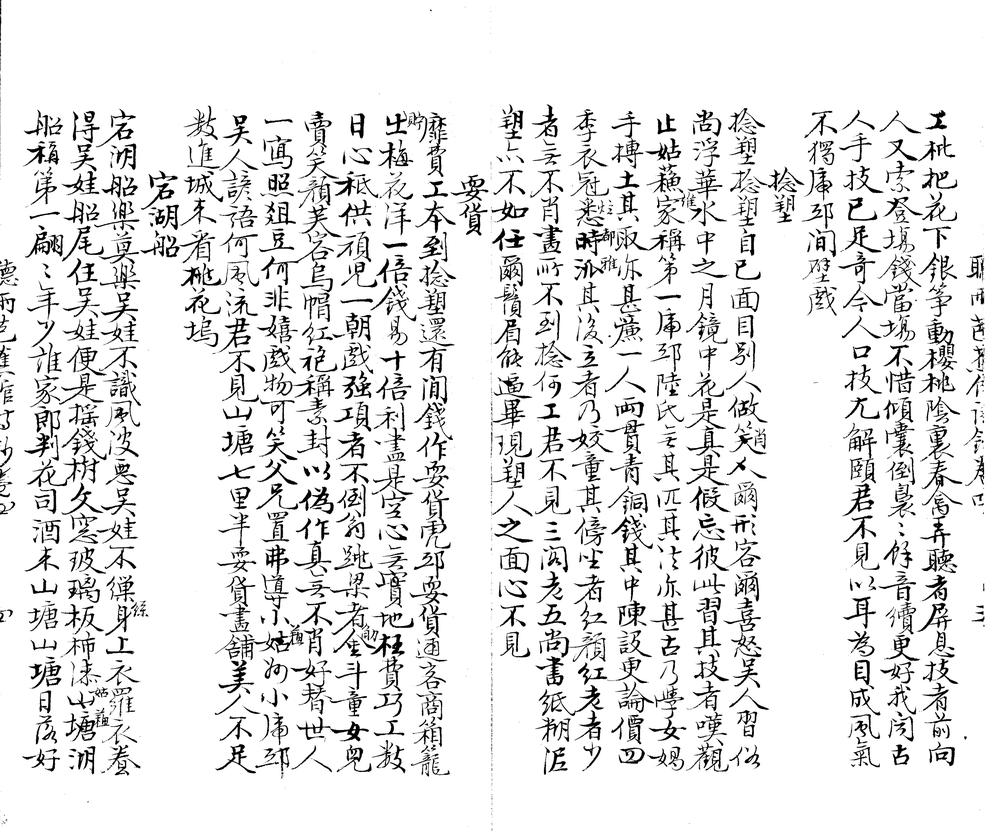 工枇杷花下銀箏動櫻桃陰裏春禽弄聽者屏息技者前向
人又索登場錢當場不惜傾囊倒裊〻餘音續更好我聞古
人手技已足奇今人口技尤解頤君不見以耳為目成風氣
不獨虎邱間壁戲
捻塑
捻塑捻塑自己面目別人做笑人爾形容爾喜怒吴人習俗
尚浮華水中之月鏡中花是真是假忘彼此習其技者嘆觀
止姑蘇家稱第一虎邱陸氏無其匹其法亦甚古乃學女媧
手搏土其取亦甚廉一人兩貫青銅錢其中陳設更論價四
季衣冠悉時派其後立者乃姣童其傍坐者紅顏紅老者少
者無不肖畫所不到捻何工君不見三閣老五尚書紙糊泥
塑亦不如任爾鬚眉能逼畢現塑人之面心不見
耍貨
靡費工本到捻塑還有閒錢作耍貨虎邱耍貨通客商箱籠
出梅花洋一倍錢易十倍利盡是空心無實地枉費巧工數
日心秪供頑兒一朝戲強項者不倒翁跳梁者金斗童女兒
賣笑顏芙容烏帽紅袍稱素封以偽作真無不肖好替世人
一寫照俎豆何非嬉戲物可笑父兄置弗導小姑姑小虎邱
吴人諺語何風流君不見山塘七里半耍貨畫舖美人不足
数進城來看桃花塢
宕湖船
宕湖船樂莫樂吴娃不識風波惡吴娃不繅身上衣羅衣養
得吴娃船尾住吴娃便是摇錢樹久窓玻璃板柿漆山塘湖
船稱第一翩〻年少誰家郎判花司酒來山塘山塘日落好